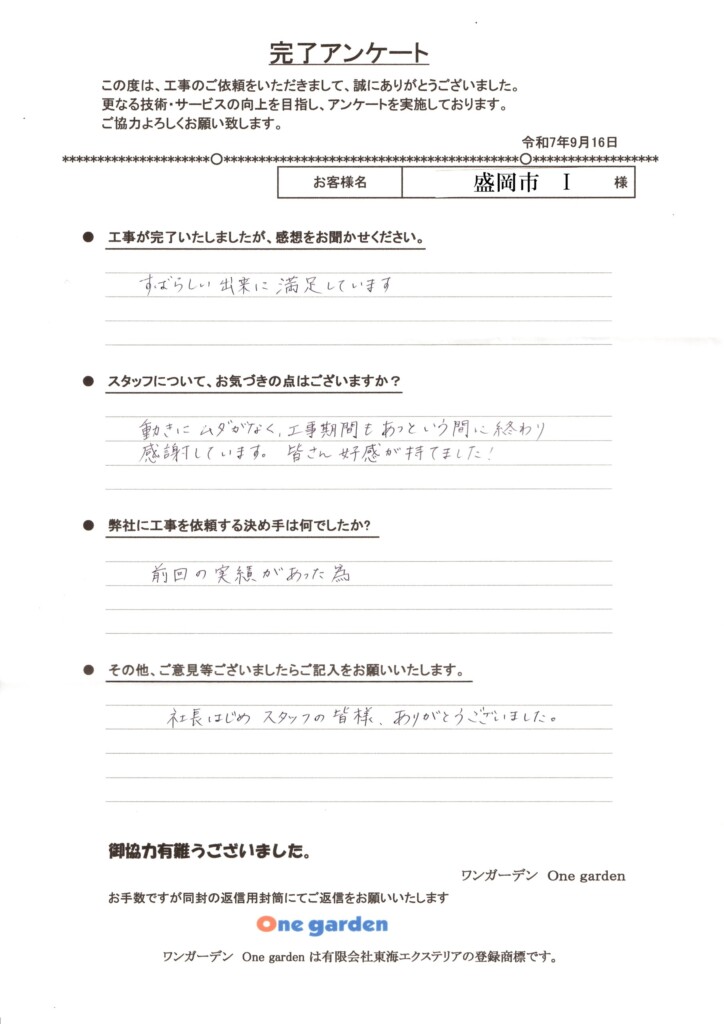 完了アンケート
この度は、工事のご依頼をいただきまして、誠にありがとうございました。
更なる技術・サービスの向上を目指し、アンケートを実施しております。
ご協力よろしくお願い致します。
令和7年9月16日
お客様名 盛岡市 I 様
● 工事が完了いたしましたが、感想をお聞かせください。
すばらしい出来に満足しています
● スタッフについて、お気づきの点はございますか？
動きにムダがなく、工事期間もあっという間に終わり
感謝しています。皆さん好感が持てました！
● 弊社に工事を依頼する決め手は何でしたか?
前回の実績があった為
● その他、ご意見等ございましたらご記入をお願いいたします。
社長はじめスタッフの皆様、ありがとうございました。
御協力有難うございました。
ワンガーデン One garden
お手数ですが同封の返信用封筒にてご返信をお願いいたします
One garden
ワンガーデン One garden は有限会社東海エクステリアの登録商標です。